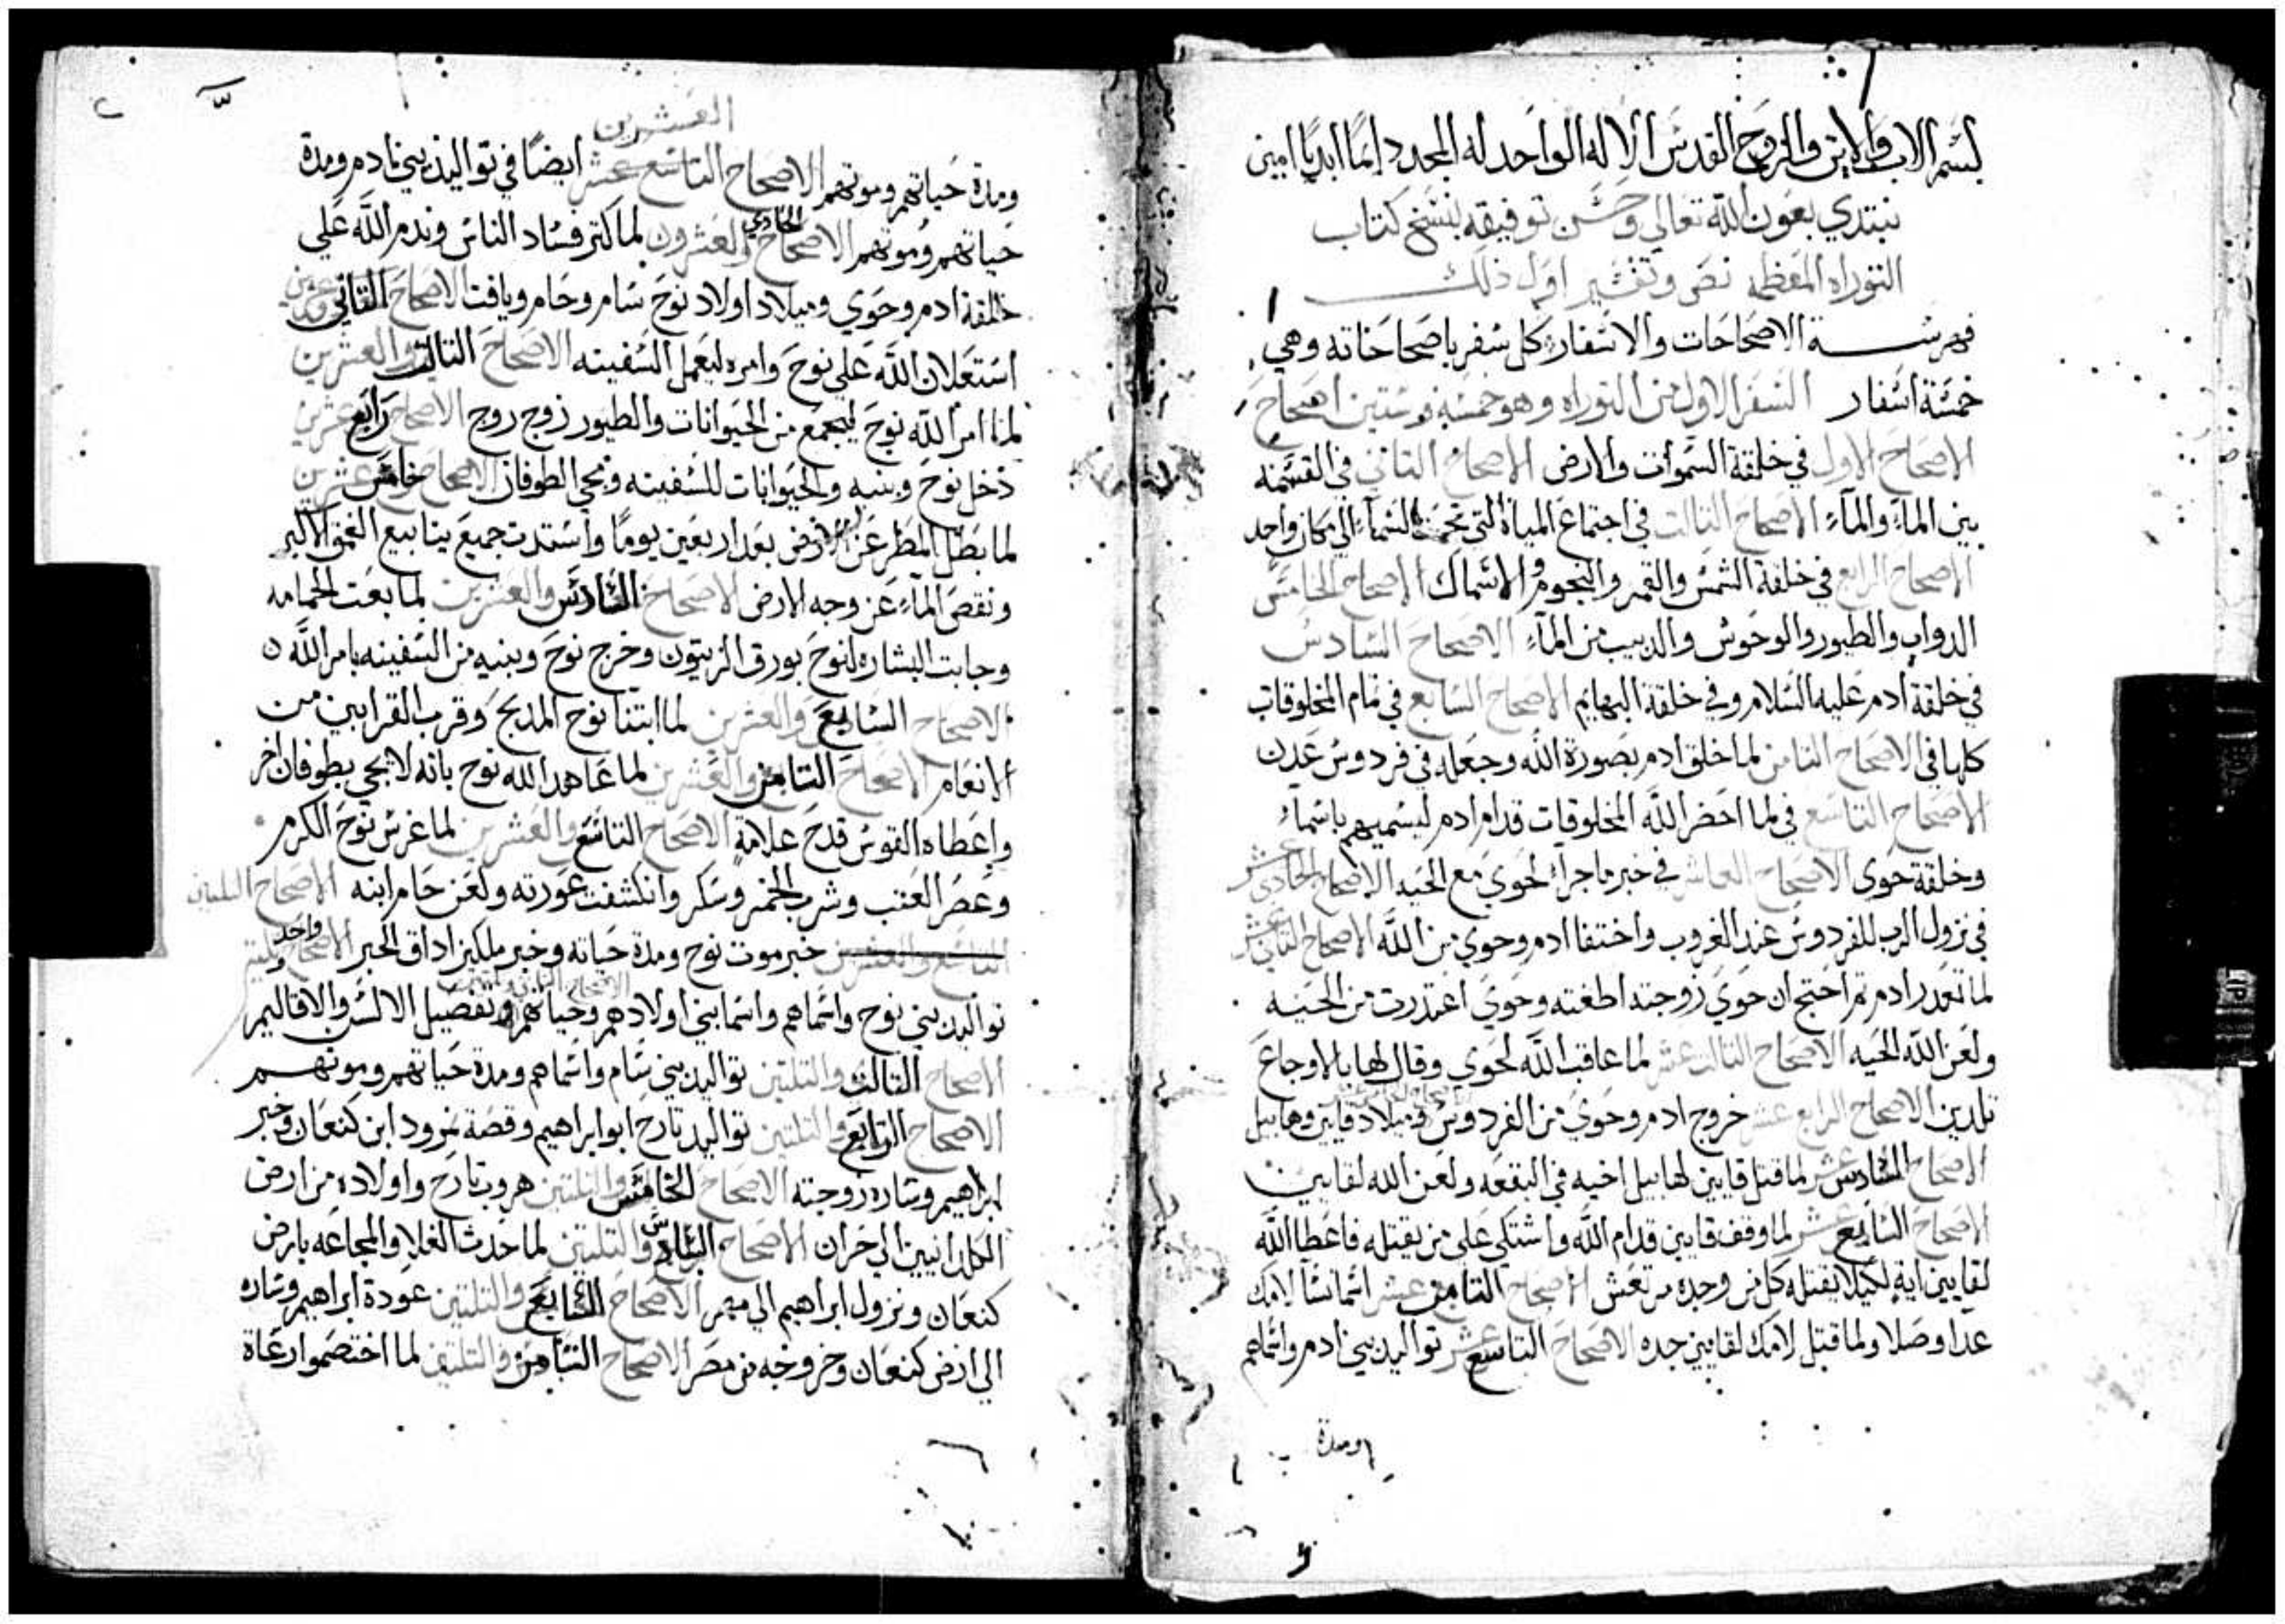 بسم الاب والابن والروح القدس الاله الواحد له المجد دايمًا ابديًا امين
نبتدي بعون الله تعالي وحسن توفيقه بنسخ كتاب
التوراه المعظمه نص وتفسير اول ذلك
فهرسة الاصحاحات والاسفار كل سفر باصحاحاته وهي
خمسة اسفار السفر الاول من التوراه وهو خمسه وستين اصحاح
الاصحاح الاول في خلقة السموات والارض الاصحاح التاني في القسمه
بين الماء والماء الاصحاح التالت في اجتماع المياة التي تحت السماء الي مكان واحد
الاصحاح الرابع في خلقة الشمس والقمر والنجوم والاسماك الاصحاح الخامس
الدواب والطيور والوحوش والدبيب من الماء الاصحاح السادس
في خلقة ادم عليه السلام وفي خلقة البهايم الاصحاح السابع في تمام المخلوقات
كلها في الاصحاح التامن لما خلق ادم بصورة الله وجعله في فردوس عدن
الاصحاح التاسع في لما احضر الله المخلوقات قدام ادم ليسميهم باسماء
وخلقة حوي الاصحاح العاشر في خبر ما جرا لحوي مع الحيه الاصحاح الحادي عشر
في نزول الرب للفردوس عند الغروب واختفا ادم وحوي من الله الاصحاح التاني عشر
لما تعدر ادم تم احتج ان حوي زوجته اطغته وحوي اعتدرت من الحيه
ولعن الله الحيه الاصحاح التالت عشر لما عاقب الله لحوي وقال لها بالاوجاع
تلدين الاصحاح الرابع عشر خروج ادم وحوي من الفردوس وميلاد قايين وهابيل
الاصحاح السادس عشر لما قتل قايين لهابيل اخيه في البقعه ولعن الله لقايين
الاصحاح السابع عشر لما وقف قايين قدام الله واشتكي علي من يقتله فاعطا الله
لقايين اية لكيلا يقتله كل من وجده مرتعش الاصحاح التامن عشر اسما نسا لامك
عدا وصلا ولما قتل لامك لقايين جده الاصحاح التاسع عشر تواليد بني ادم واسماهم
ومدة
العشرين
ومدة حياتهم وموتهم الاصحاح التاسع عشر ايضًا في تواليد بني ادم ومدة
حياتهم وموتهم الاصحاح الحادي والعشرون لما كتر فساد الناس وندم الله علي
خلقة ادم وحوي وميلاد اولاد نوح سام وحام ويافت الاصحاح التاني وعشرين
استعلان الله علي نوح وامره ليعمل السفينه الاصحاح التالت والعشرين
لما امر الله نوح ليجمع من الحيوانات والطيور زوج زوج الاصحاح رابع عشرين
دخل نوح وبنيه والحيوانات للسفينه ومجي الطوفان الاصحاح خامس عشرين
لما بطل المطر عن الارض بعد اربعين يومًا واستدت جميع ينابيع الغمق الاكبر
ونقص الماء عن وجه الارض الاصحاح السادس والعشرين لما بعت الحمامه
وجابت البشاره لنوح بورق الزيتون وخرج نوح وبنيه من السفينه بامر الله
الاصحاح السابع والعشرين لما ابتنا نوح المدبح وقرب القرابين من
الانعام الاصحاح التامن والعشرين لما عاهد الله نوح بانه لا يجي بطوفان اخر
واعطاه القوس قدح علامة الاصحاح التاسع والعشرين لما غرس نوح الكرم
وعصر العنب وشرب الخمر وسكر وانكشفت عورته ولعن حام ابنه الاصحاح التلتين
التاسع والعشرين خبر موت نوح ومدة حياته وخبر ملكيزاداق الحبر الاصحاح واحد وتلتين
الاصحاح التاني والتلتين
تواليد بني نوح واسماهم واسما بني اولادهم وحياتهم وتفصيل الالسن والاقاليم
الاصحاح التالت والتلتين تواليد بني سام واسماهم ومدة حياتهم وموتهم
الاصحاح الرابع والتلتين تواليد تارح ابو ابراهيم وقصة نمرود ابن كنعان وخبر
ابراهيم وساره زوجته الاصحاح الخامس والتلتين هروب تارح واولاده من ارض
الكلدانيين الي حران الاصحاح السادس والتلتين لما حدث الغلا والمجاعه بارض
كنعان ونزول ابراهيم الي مصر الاصحاح السابع والتلتين عودة ابراهيم وساره
الي ارض كنعان وخروجه من مصر الاصحاح التامن والتلتين لما اختصموا رعاة